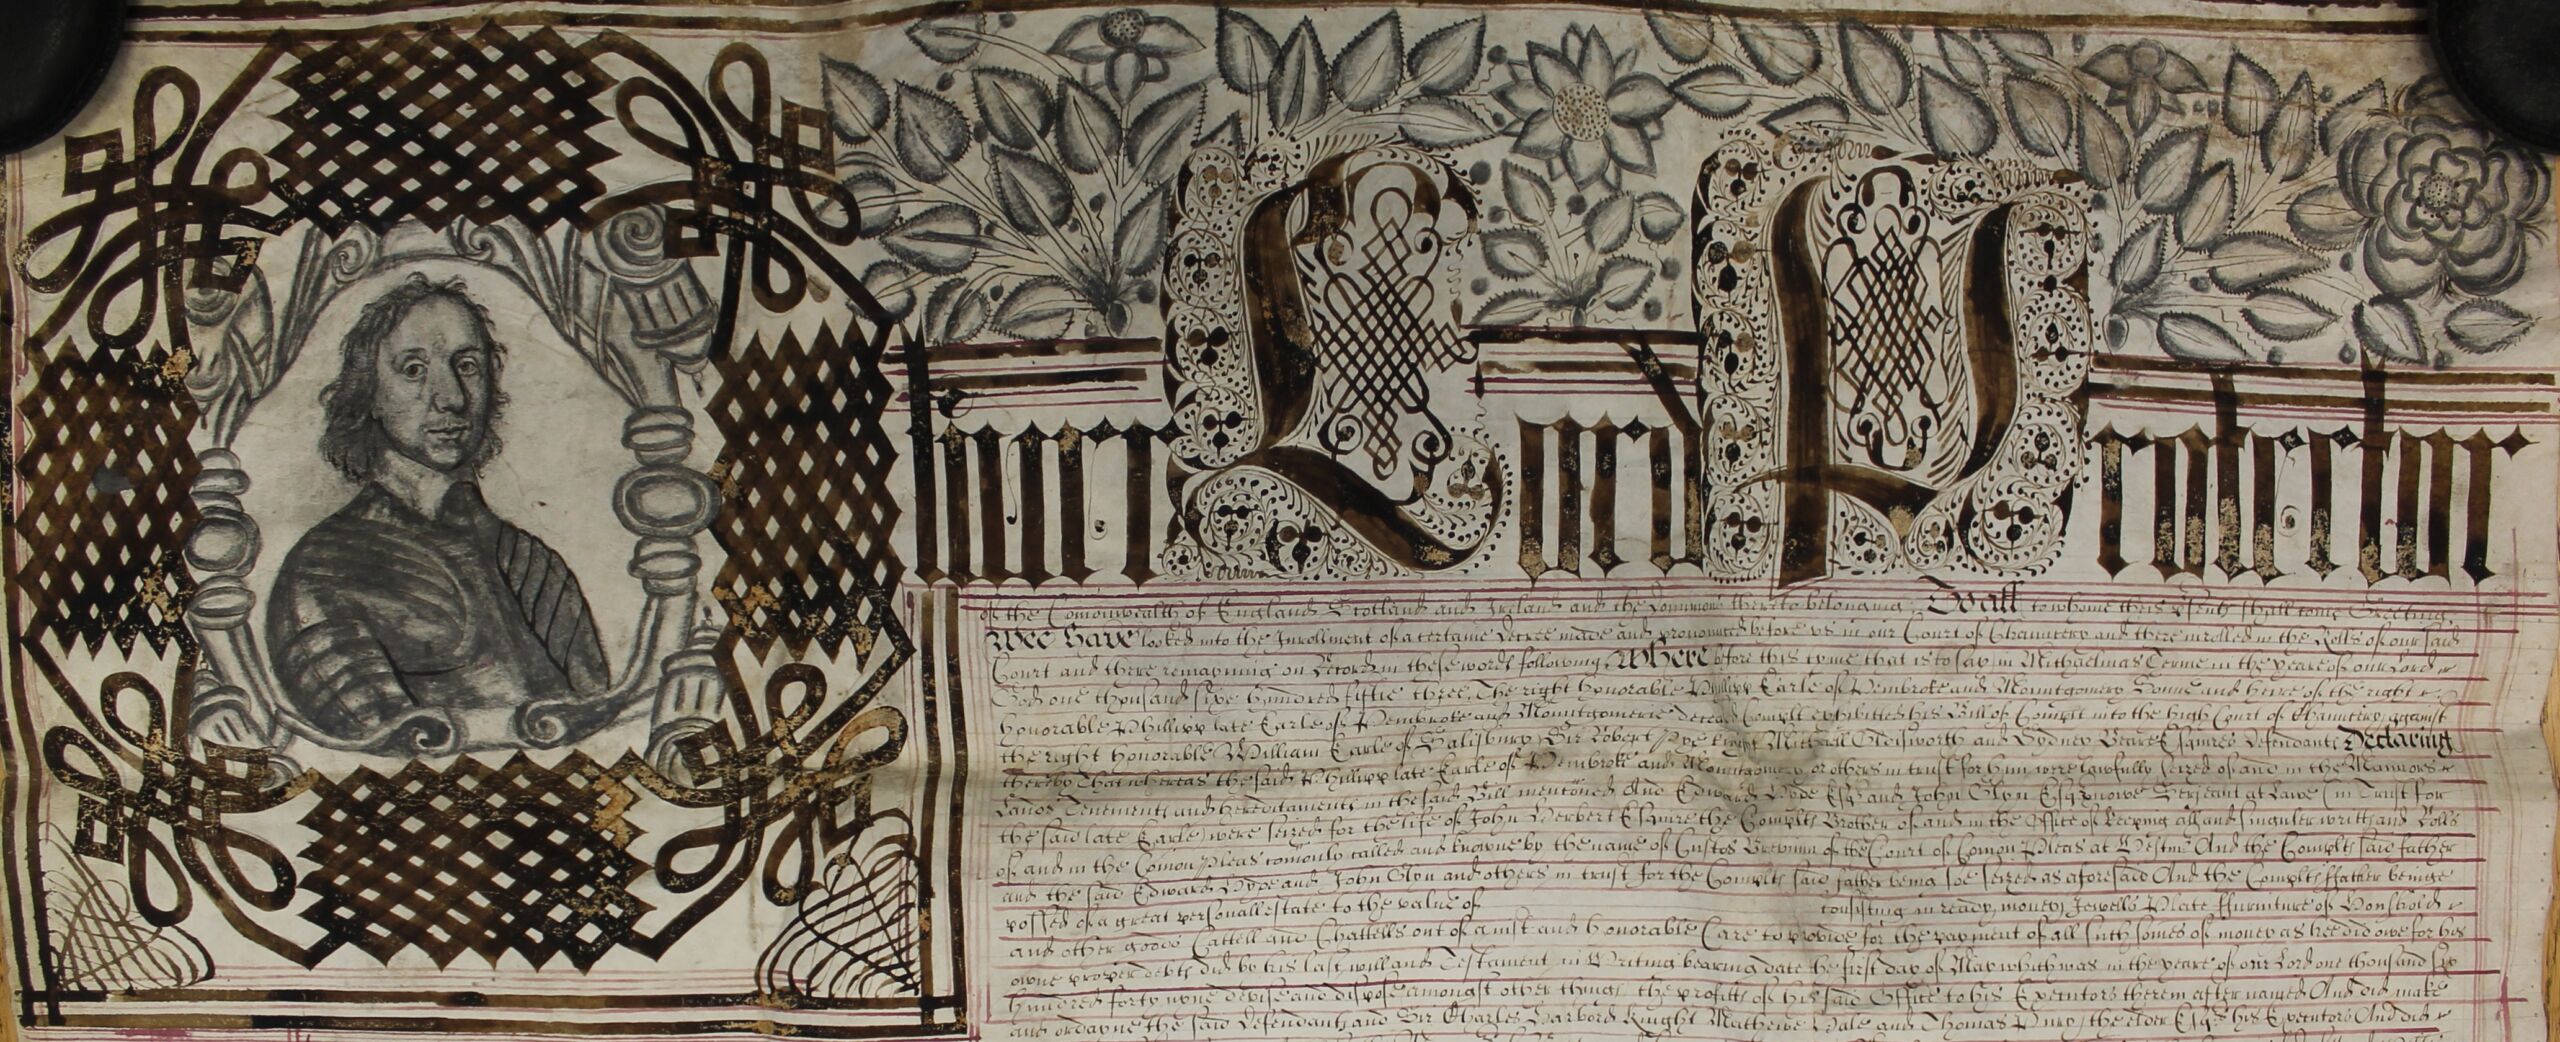 liver Lord Protector
of the Comonwealth of England Scotland and Ireland and the Dominions thereto belonging To all to whome theis psents shall come Greeting
Wee have looked into the Inrollment of a certaine Decree made and pronounced before us in our Court of Chauncery and there inrolled in the Rolls of our said
Court and there remayning on Record in these words following Where before this tyme that is to say in Michaelmas Terme in the yeare of our Lord
God one thousand sixe hundred fiftie three The right honorable Phillipp Earle of Pembroke and Mountgomery Sonne and heire of the right
honorable Phillipp late Earle of Pembroke and Mountgomerie deceased Complt exhibited his Bill of Complt into the high Court of Chauncery against
the right honorable William Earle of Salisbury Sir Robert Pye Knight Michaell Oldisworth and Sydney Beare Esquires defendants Declaring
thereby That whereas the said Phillipp late Earle of Pembroke and Mountgomery or others in trust for him were lawfully seized of and in the Mannors
Lands Tenements and hereditaments in the said Bill mentioned And Edward Esqr and John Glyn Esqr nowe Serjeant at Lawe (in Trust for
the said late Earle) were seized for the life of John Herbert Esquire the Complts Brother of and in the Office of keeping all and singuler writts and Rolls
of and in the Comon Pleas comonly called and knowne by the name of Custos Brevium of the Court of Comon Pleas at Westmr And the Complts said father
and the said Edward and John Glyn and others in trust for the Complts said father being soe seized as aforesaid And the Complts ffather beinge
possed of a great personall estate to the value of consisting in ready money Jewells Plate ffurniture of Houshold
and other goods Cattell and Chattells out of a just and honorable Care to provide for the payment of all such somes of money as hee did owe for his
owne proper debts did by his last will and Testament in Writing bearing date the first day of May which was in the yeare of our Lord one thousand six
hundred forty nyne devise and dispose amongst other things the profitts of his said Office to his Executors therein after named And did make
and ordayne the said defendants and Sir Charles Harbord Knight Mathewe Hale and Thomas Pury the elder Esqrs his Executors And did